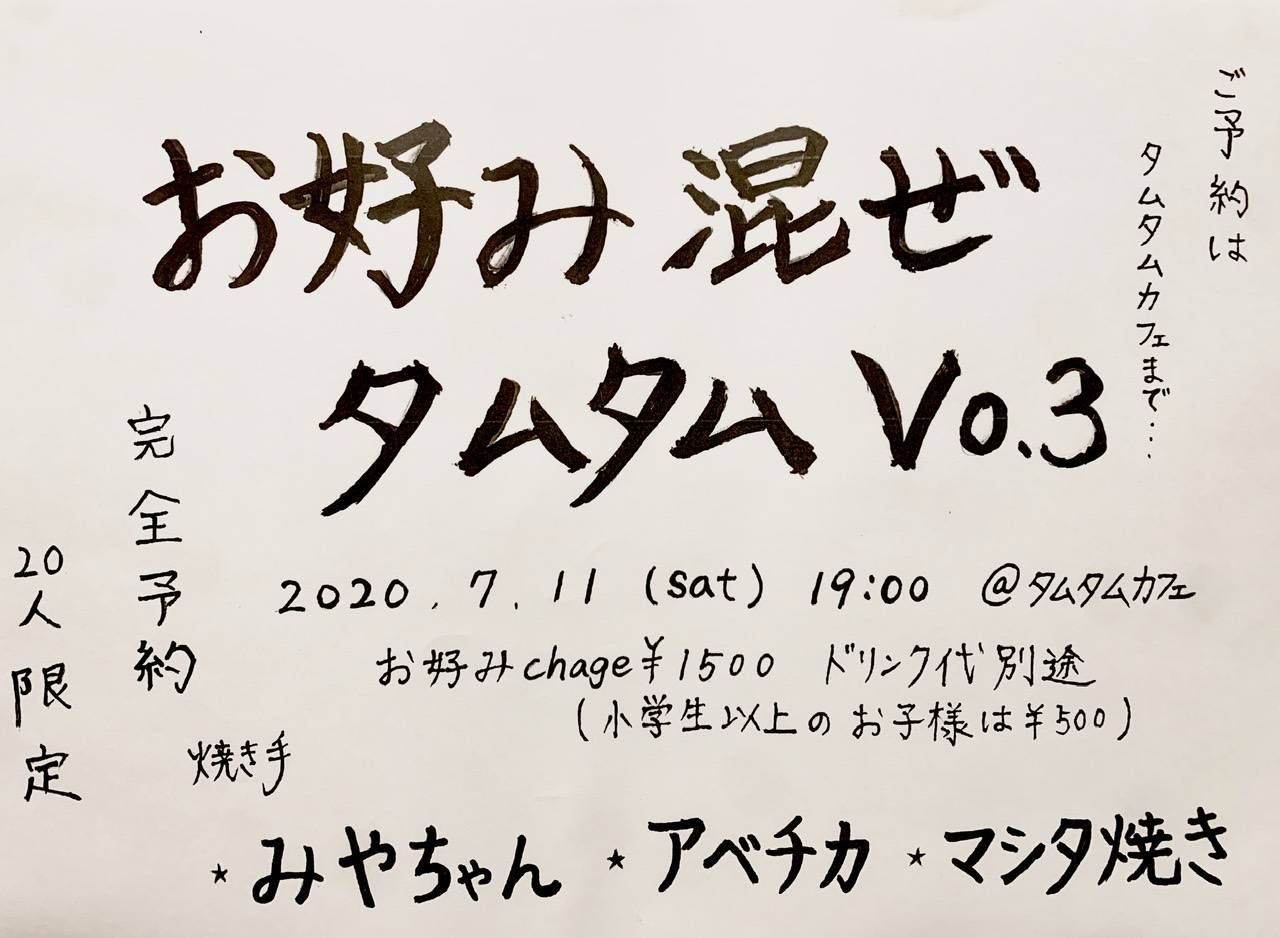 お好み混ぜ
タムタム Vo.3
ご予約は
タムタムカフェまで...
完全予約
20人限定
2020.7.11 (sat) 19:00 @タムタムカフェ
お好みchage¥1500 ドリンク代別途
(小学生以上のお子様は¥500)
焼き手
★みやちゃん ★アベチカ ★マシタ焼き